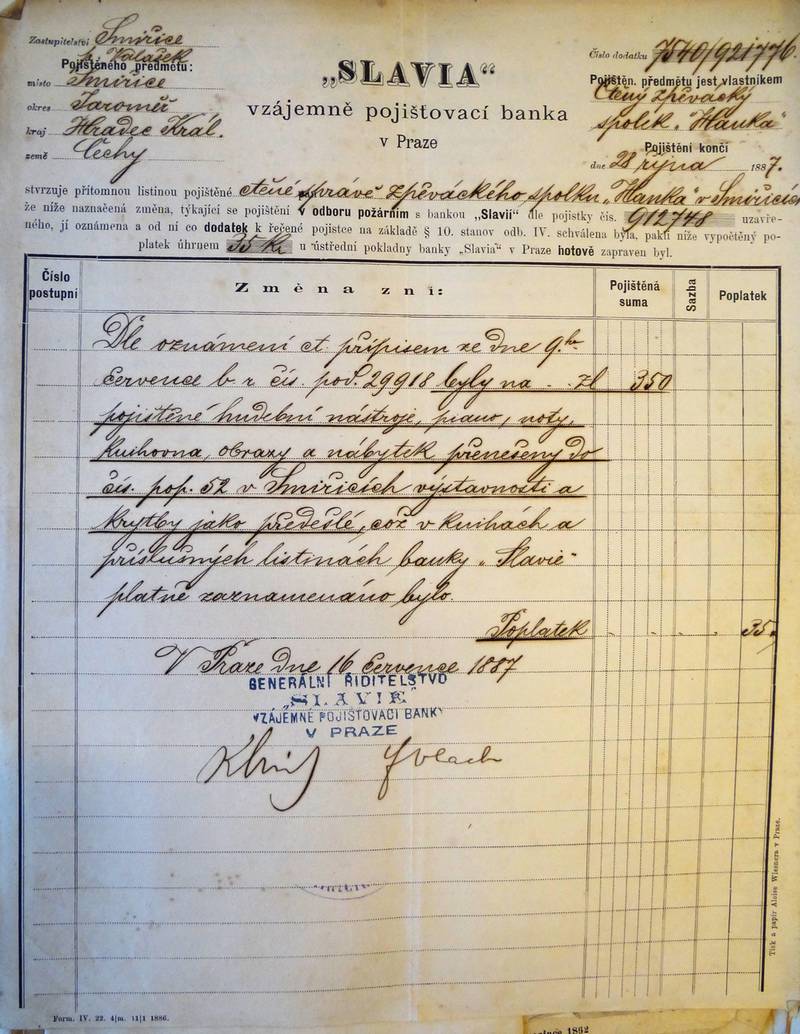 Zastupitelství Smiřice
p. Valášek
Pojištěného předmětu:
místo Smiřice
okres Jaroměř
kraj Hradec Král.
země Čechy
„SLAVIA“
vzájemně pojišťovací banka
v Praze
Číslo dodatku 7540/921776.
Pojištěn. předmětu jest vlastníkem
Ctěný zpěvácký
spolek „Hanka“
Pojištění končí
dne 28 října 1887.
stvrzuje přítomnou listinou pojištěné ctěné správě zpěváckého spolku „Hanka“ v Smiřicích
že níže naznačená změna, týkající se pojištění v odboru požárním s bankou „Slavií“ dle pojistky čís. 912748 uzavře-
ného, jí oznámena a od ní co dodatek k řečené pojistce na základě § 10. stanov odb. IV. schválena byla, pakli níže vypočtěný po-
platek úhrnem 35 kr. u ústřední pokladny banky „Slavia“ v Praze hotově zapraven byl.
Číslo postupní
Změna zní:
Pojištěná suma
Sazba
Poplatek
Dle oznámení ct. přípisem ze dne 9.ho
července b. r. čís. pod. 29918 byly na . . zl 350
pojištěné hudební nástroje, piano, noty,
knihovna, obrazy a nábytek přenešeny do
čís. pop. 52 v Smiřicích výstavnosti a
krytby jako předešlé, což v knihách a
příslušných listinách banky „Slavie“
platně zaznamenáno bylo.
Poplatek . . . . 35.
V Praze dne 16 července 1887
GENERÁLNÍ ŘIDITELSTVO
„SLAVIE“
VZÁJEMNĚ POJIŠŤOVACÍ BANKY
V PRAZE
Tisk a papír Aloise Wiesnera v Praze.
Form. IV. 22. 4|m. 11|1 1886.